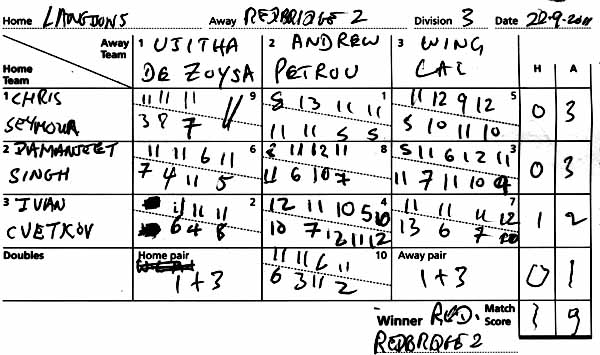 Home LANGDONS Away REDBRIDGE 2 Division 3 Date 22-9-2011
Away Team 1 UJITHA DE ZOYSA 2 ANDREW PETROU 3 WING CAI H A
Home Team
1 CHRIS SEYMOUR
11 11 11 9
3 8 7
8 13 11 11 1
11 11 5 5
11 12 9 12 5
5 10 11 10
0 3
2 DAMANJEET SINGH
11 11 6 11 6
7 4 11 5
8 11 12 11 8
11 6 10 7
5 11 6 12 11 3
11 7 11 10 9
0 3
3 IVAN CVETKOV
11 11 11 2
6 4 8
12 11 10 5 10 4
10 7 12 11 12
11 11 11 12 7
13 6 7 10
1 2
Doubles Home pair 1+3
11 11 6 11 10
6 3 11 2
Away pair 1+3
0 1
Winner RED. Match Score 1 9
REDBRIDGE 2